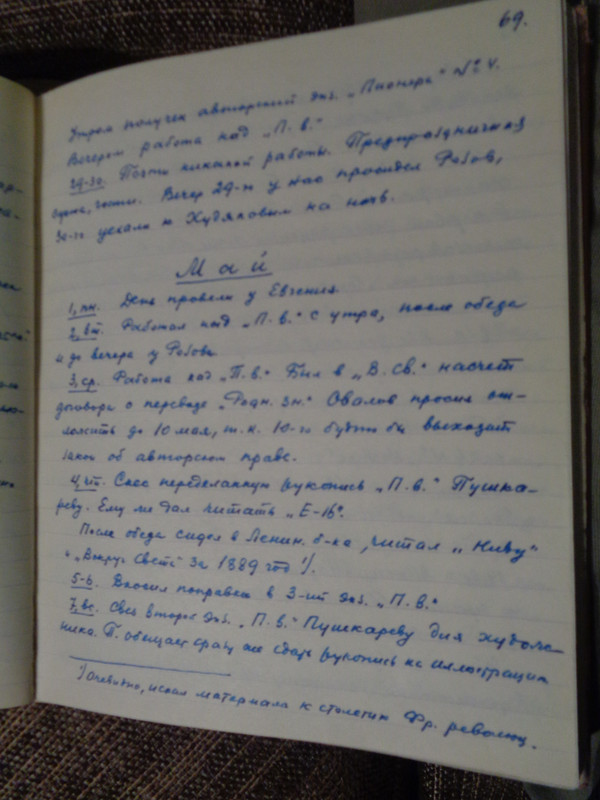 69.
Утром получен авторский экз. „Пионера" № 4.
Вечером работа над „П. в."
29-30. Почти никакой работы. Предпраздничная
сутолока, гости. Вечер 29-го у нас просидел Рябов,
30-го уехали к Худяковым на ночь.
Май
1, пн. День провели у Евгения.
2, вт. Работал над „П. в." с утра, после обеда
и до вечера у Рябова.
3, ср. Работа над „П. в." Был в „В. св." насчет
договора о переводе „Родн. зн." Овалов просил от-
ложить до 10 мая, т. к. 10-го будто бы выходит
закон об авторском праве.
4, чт. Снес переделанную рукопись „П. в." Пушка-
реву. Ему же дал читать „Е-16".
После обеда сидел в Ленин. б-ке, читал „Ниву"
и „Вокруг Света" за 1889 год ¹).
5-6. Вносил поправки в 3-ий экз. „П. в."
7, вс. Свез второе экз. „П. в." Пушкареву для худож-
ника. П. обещает сразу же сдать рукопись на иллюстрации
¹) Очевидно, искал материала к столетию Фр. революц.